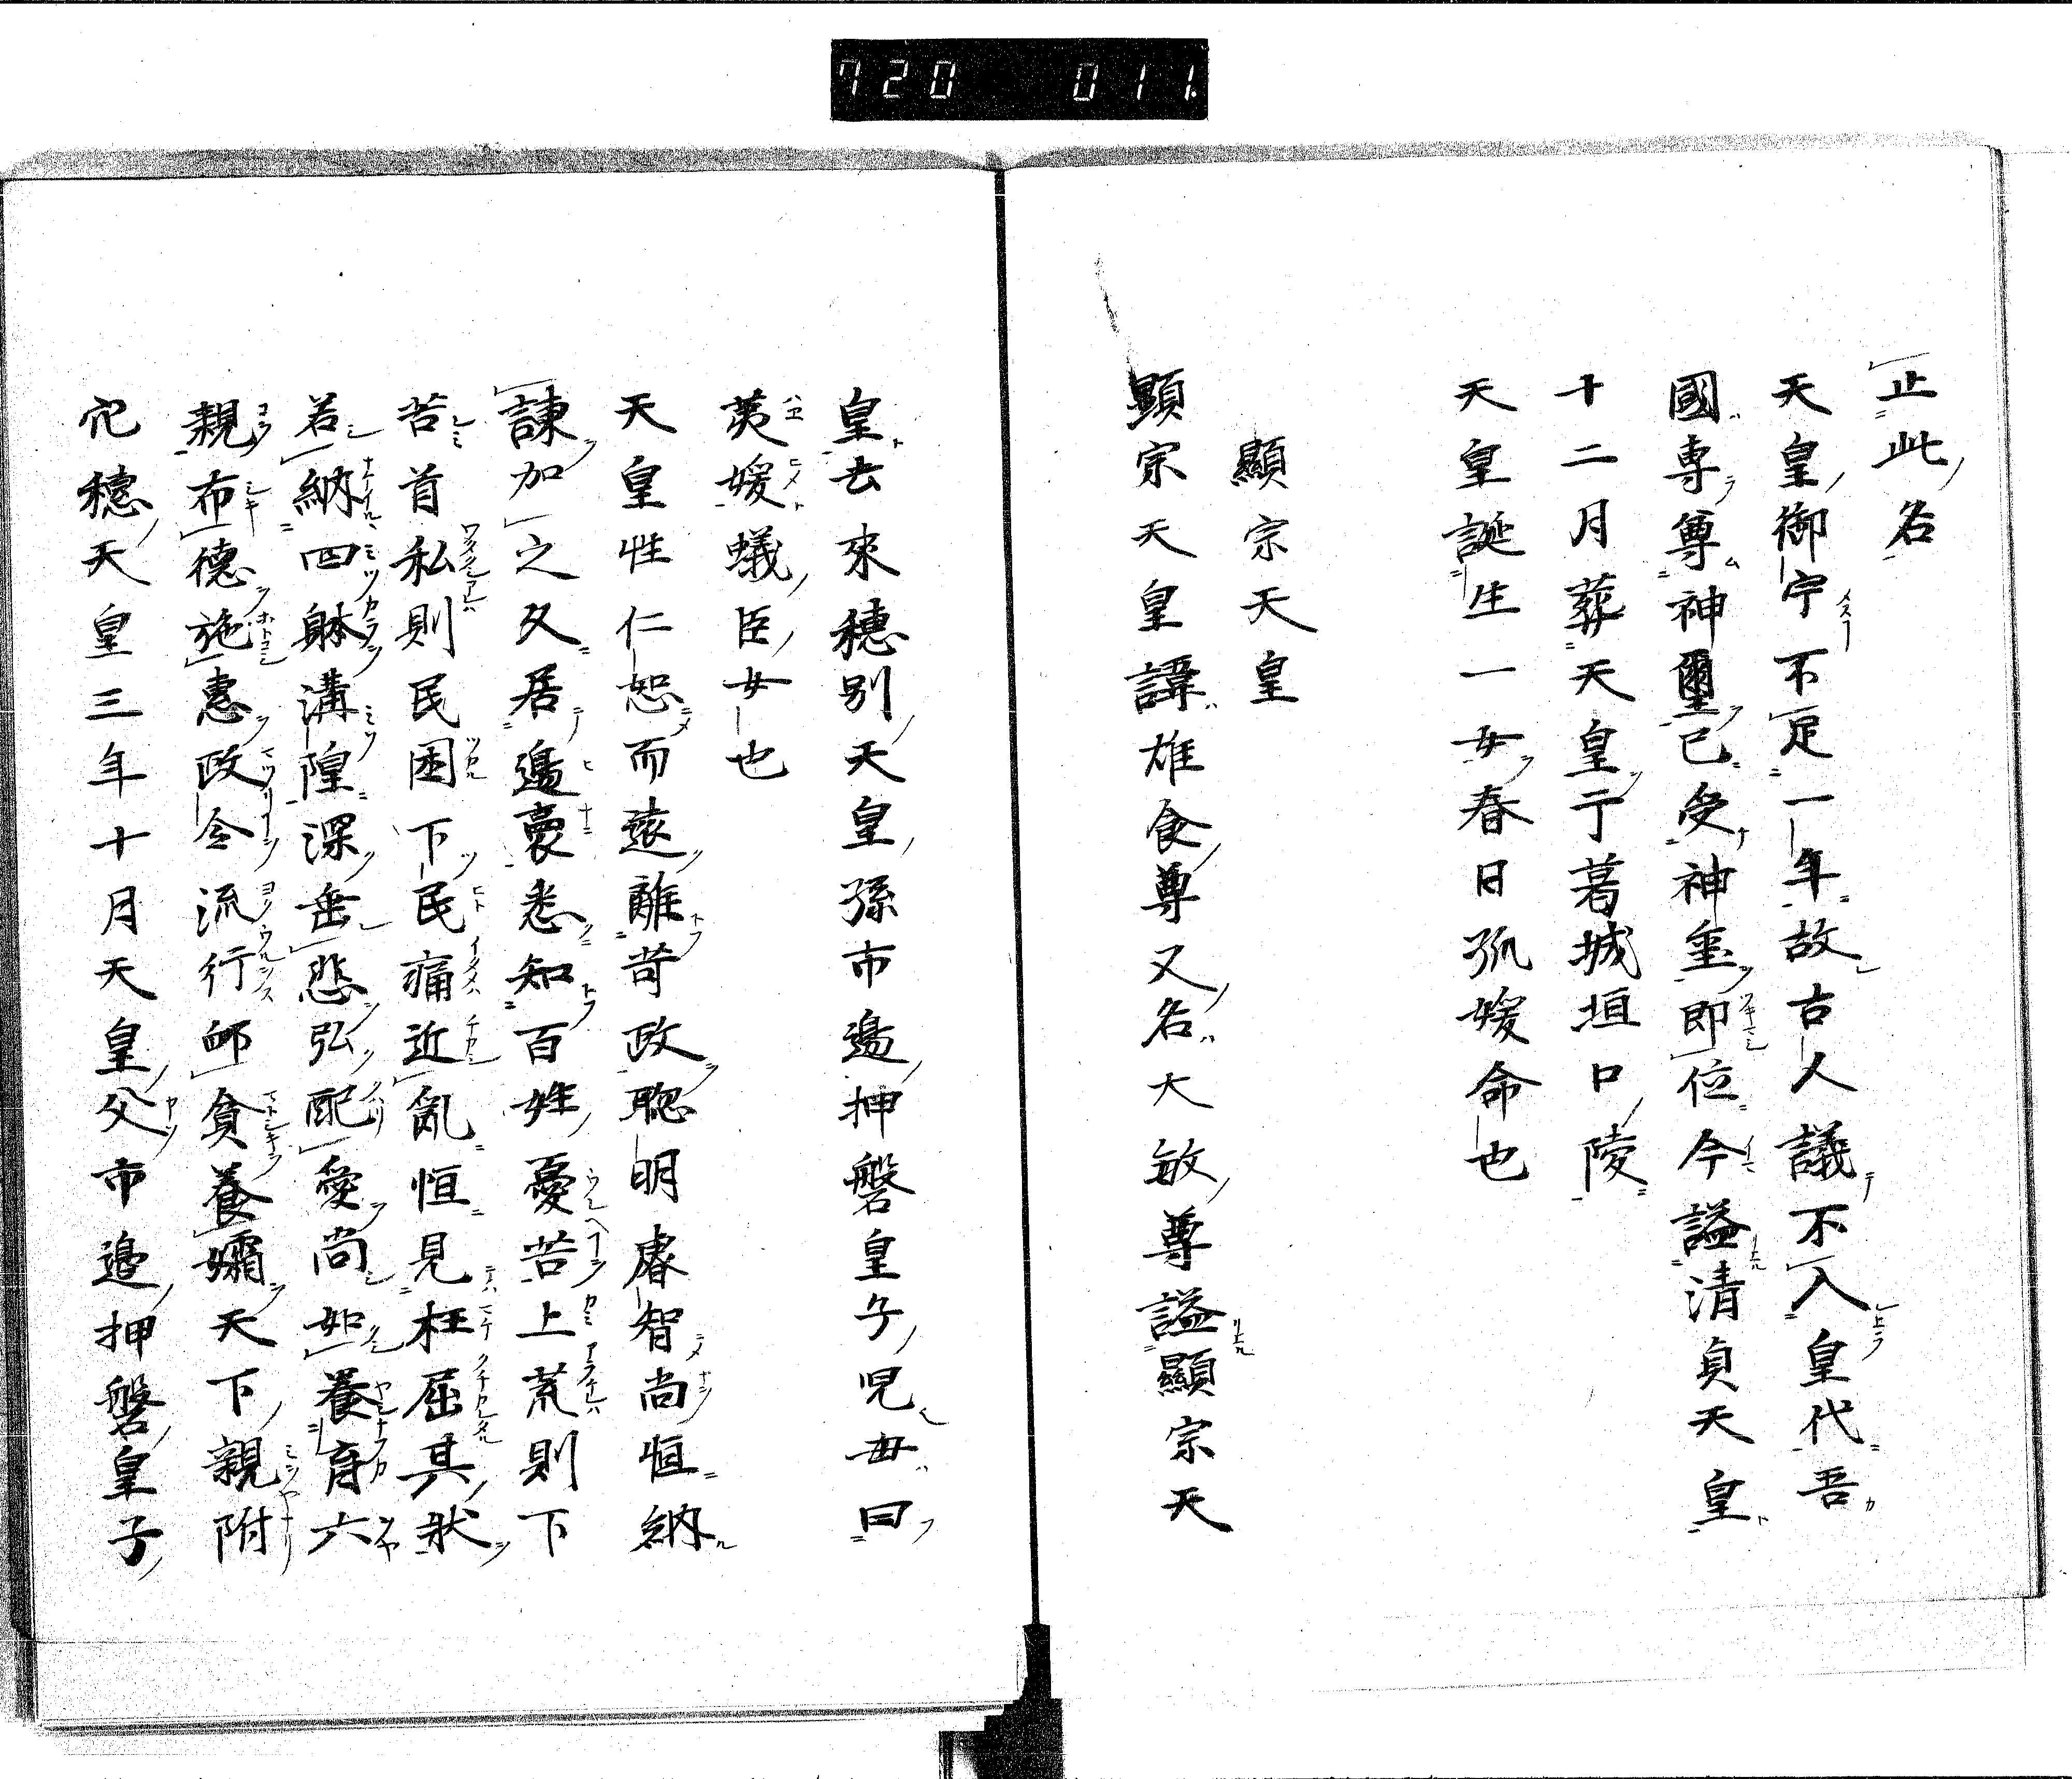 720 011
止此名
天皇御宁不足一年故古人議不入皇代吾
國専尊神璽已受神璽即位今謚清貞天皇
十二月葬天皇于葛城垣口陵
天皇誕生一女春日孤媛命也
顯宗天皇
顯宗天皇諱雄食尊又名大敏尊謚顯宗天
皇去來穗別天皇孫市邊押磐皇子児母曰
荑媛蟻臣女也
天皇性仁恕而遠離苛政聡明睿智尚恒納
諌加之久居邊裔悉知百姓憂苦上荒則下
苦首私則民困下民痛近亂恒見枉屈其状
若納四躰溝隍深岳悲弘配愛尚如養育六
親布德施惠政令流行䘏貧養孀天下親附
穴穗天皇三年十月天皇父市邊押磐皇子